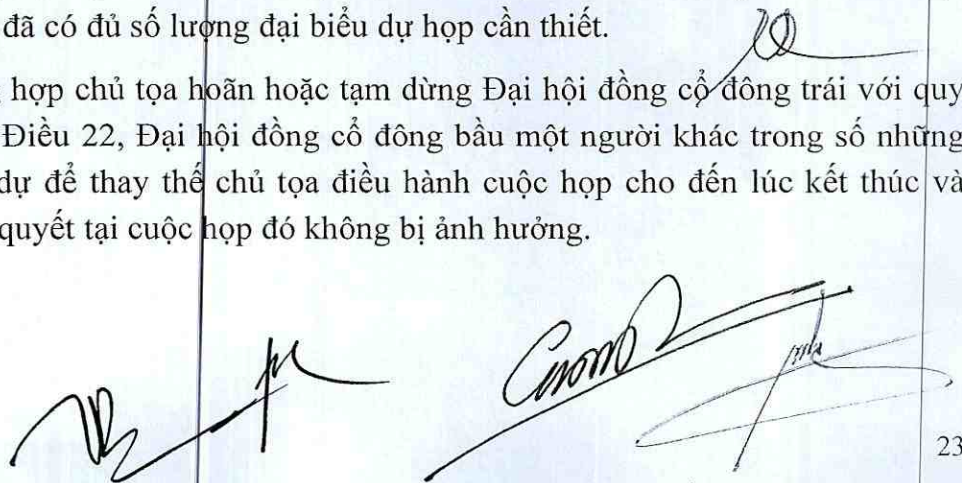 đã có đủ số lượng đại biểu dự họp cần thiết.
hợp chủ tọa hoãn hoặc tạm dừng Đại hội đồng cổ đông trái với quy
Điều 22, Đại hội đồng cổ đông bầu một người khác trong số những
dự để thay thế chủ tọa điều hành cuộc họp cho đến lúc kết thúc và
quyết tại cuộc họp đó không bị ảnh hưởng.
23